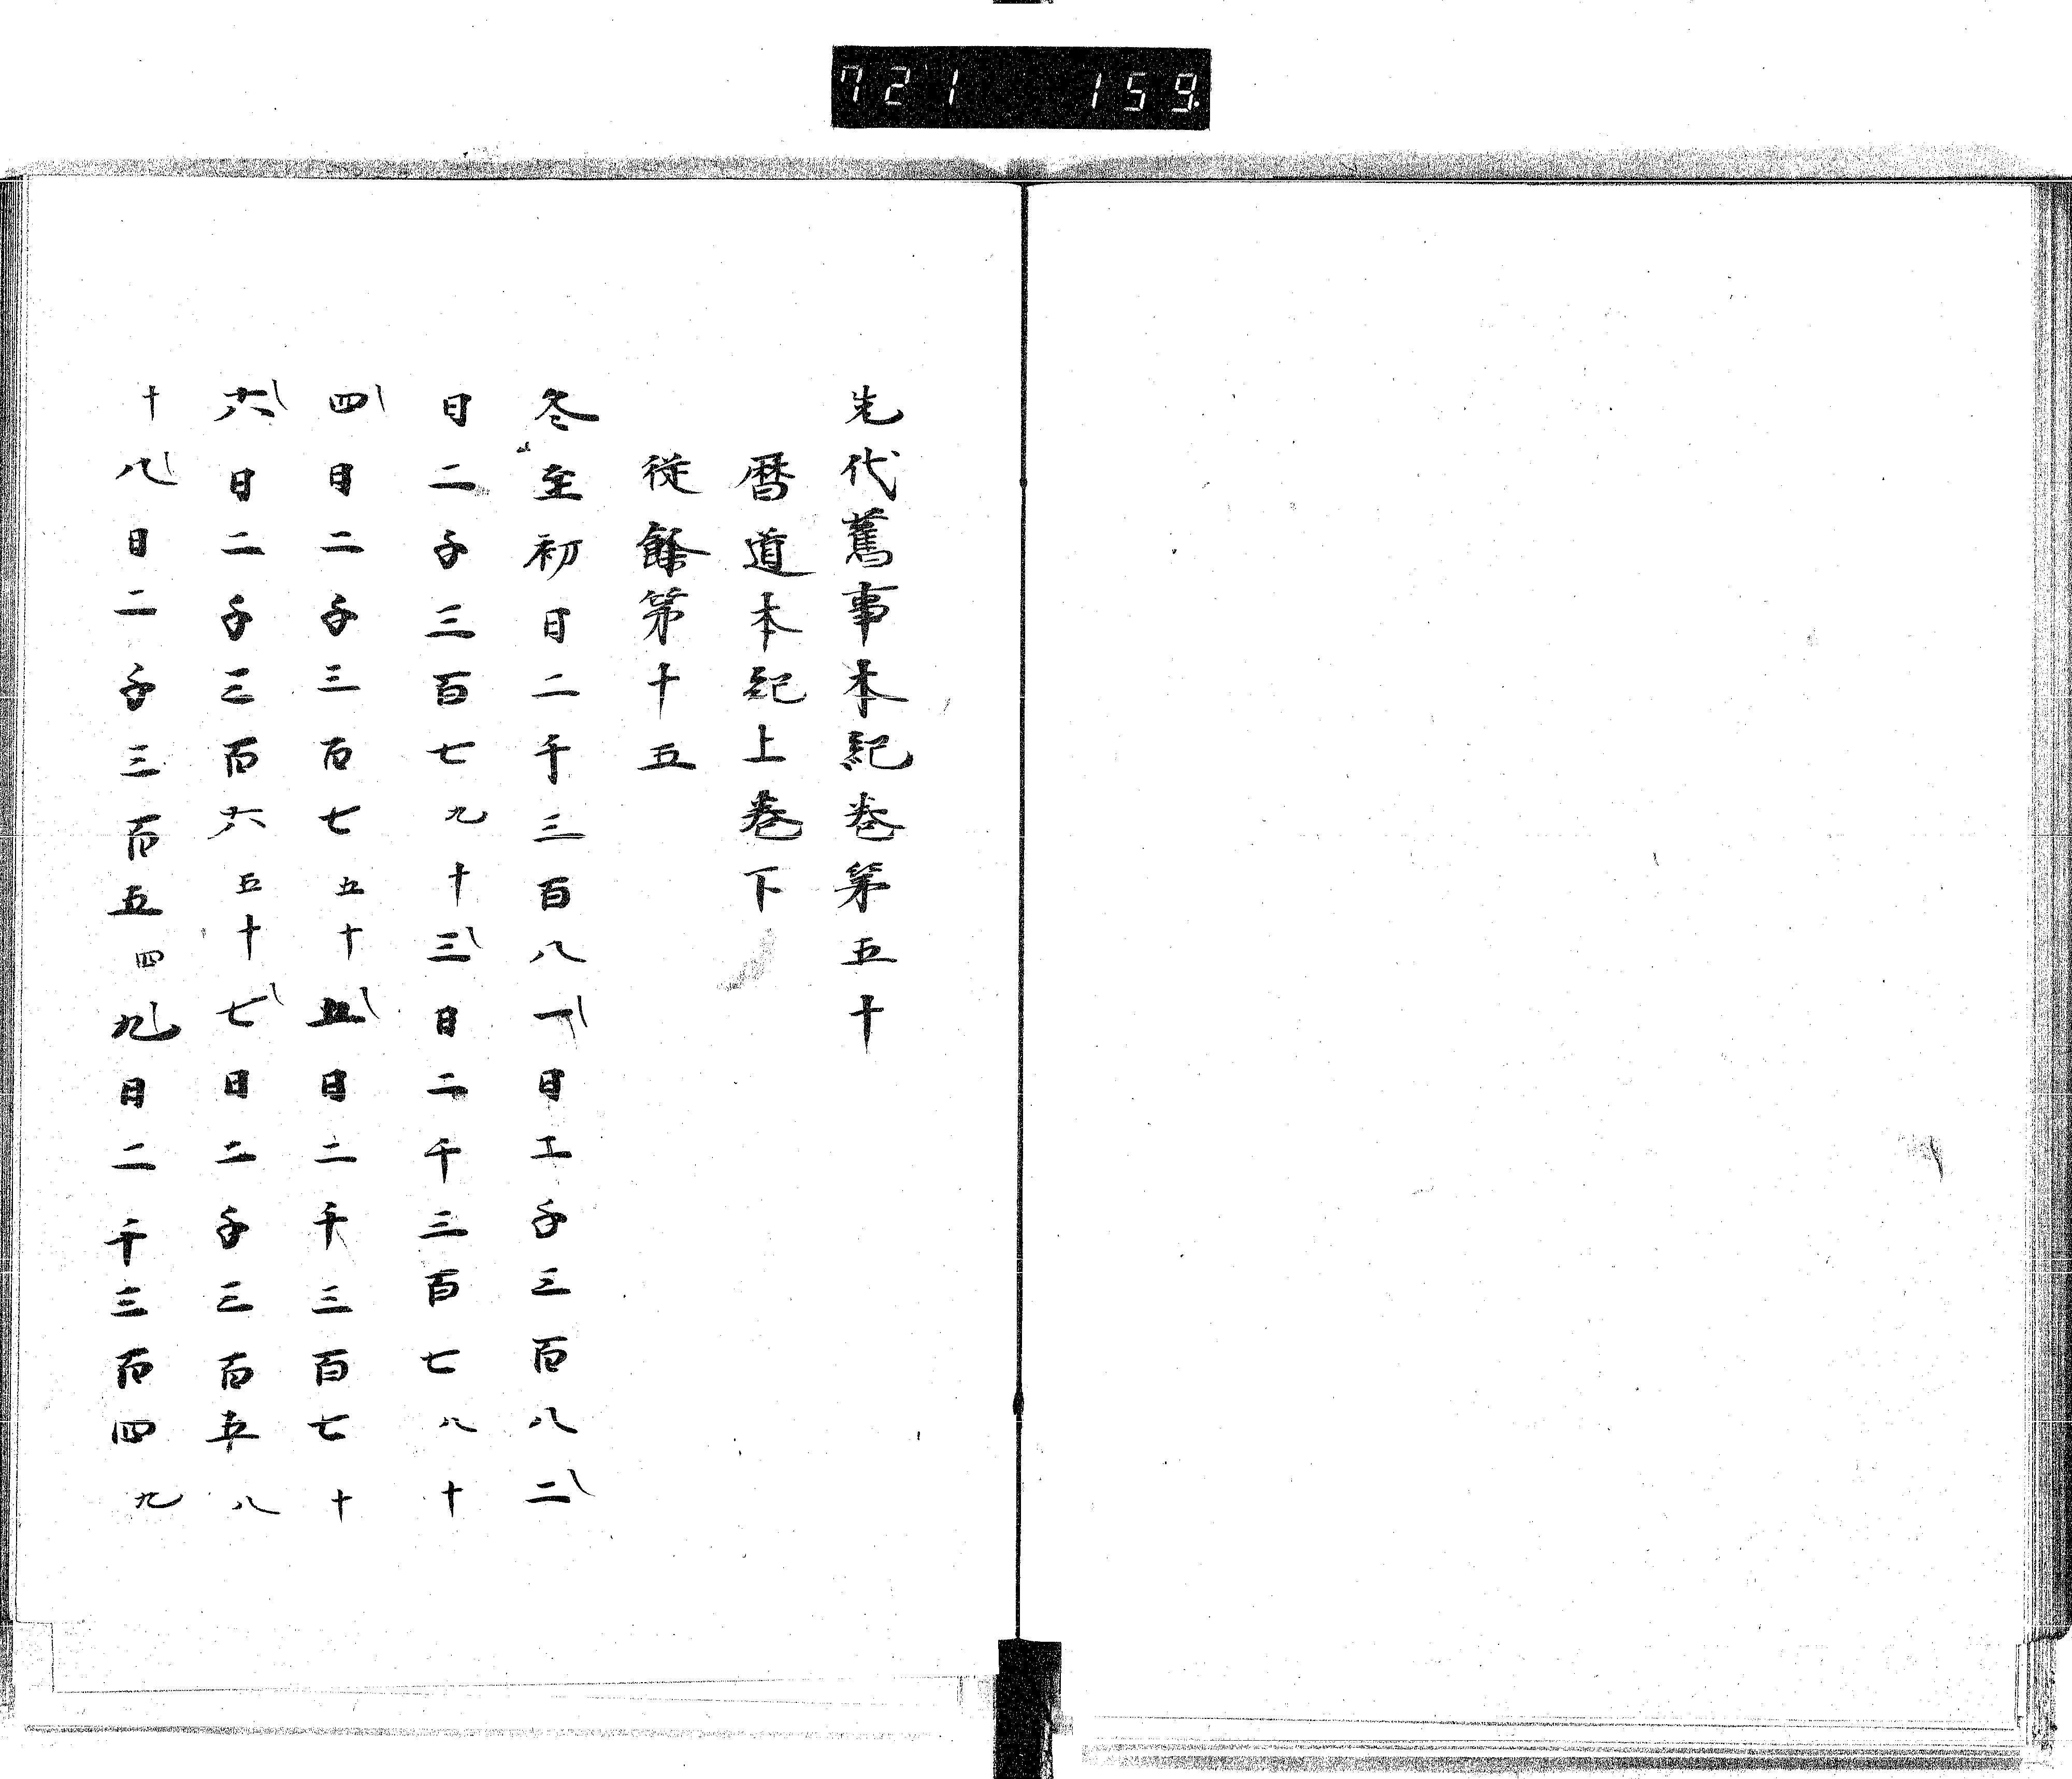 721 159
先代舊事本紀巻第五十
暦道本紀上巻下
従餘第十五
冬至初日二千三百八一日二千三百八二
日二千三百七九十三日二千三百七八十
四日二千三百七五十五日二千三百七十
六日二千三百六五十七日二千三百五八
十八日二千三百五四九日二千三百四九